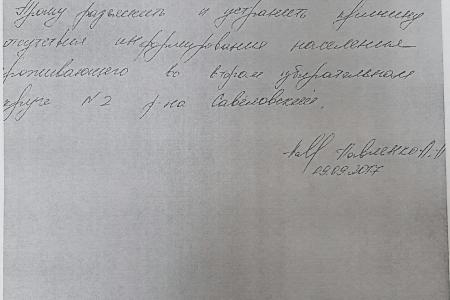 Прошу разъяснить и устранить причину
отсутствия информирования населения
проживающего во втором избирательном
округе N2 р-на Савёловский.
Павленко
09.09.2017